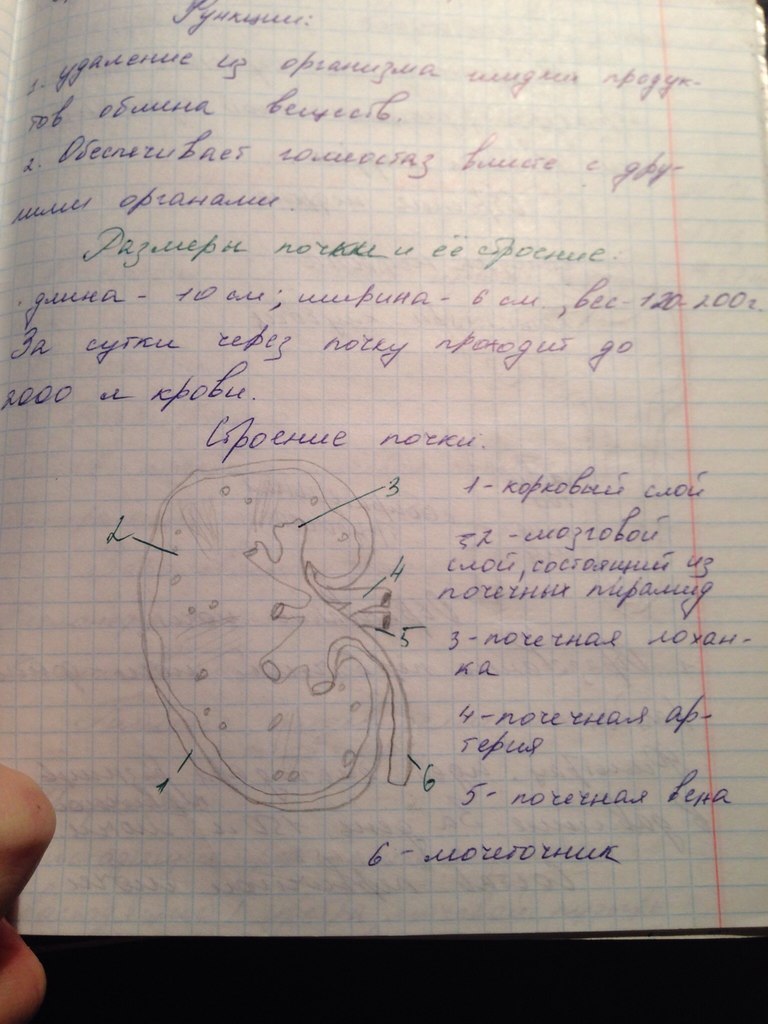 Функции:
1. удаление из организма жидких продук-
тов обмена веществ.
2. Обеспечивает гомеостаз вместе с дру-
гими органами.
Размеры почки и её строение.
длина - 10 см; ширина - 6 см, вес-120-200г.
За сутки через почку проходит до
2000 л крови.
Строение почки.
1 - корковый слой
2 - мозговой
слой, состоящий из
почечных пирамид
3 - почечная лохан-
ка
4 - почечная ар-
терия
5 - почечная вена
6 - мочеточник
3
2
4
5
1
6